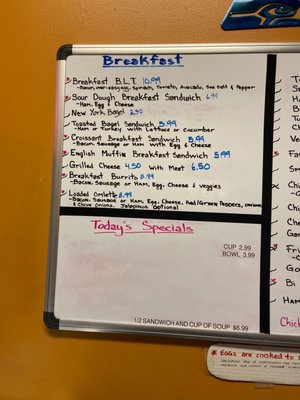 Breakfast
* Breakfast B.L.T. 10.99
-Bacon, over-easy egg, Spinach, Tomato, Avocado, Sea Salt & Pepper
* Sour Dough Breakfast Sandwich 6.99
-Ham, Egg & Cheese
New York Bagel 2.50
Toasted Bagel Sandwich 5.99
-Ham or Turkey with Lettuce or Cucumber
* Croissant Breakfast Sandwich 5.99
-Bacon, Sausage or Ham with Egg & Cheese
* English Muffin Breakfast Sandwich 5.99
Grilled Cheese 4.50 with Meat 6.50
* Breakfast Burrito 8.99
-Bacon, Sausage or Ham, Egg, Cheese & veggies
* Loaded Omlette 8.99
-Bacon, Sausage or Ham, Egg, Cheese, Red/Green Peppers, onions
& Chive Onions. Jalapenos Optional
Today's Specials
CUP 2.99
BOWL 3.99
1/2 SANDWICH AND CUP OF SOUP $6.99
Chick
* EGGS are cooked to